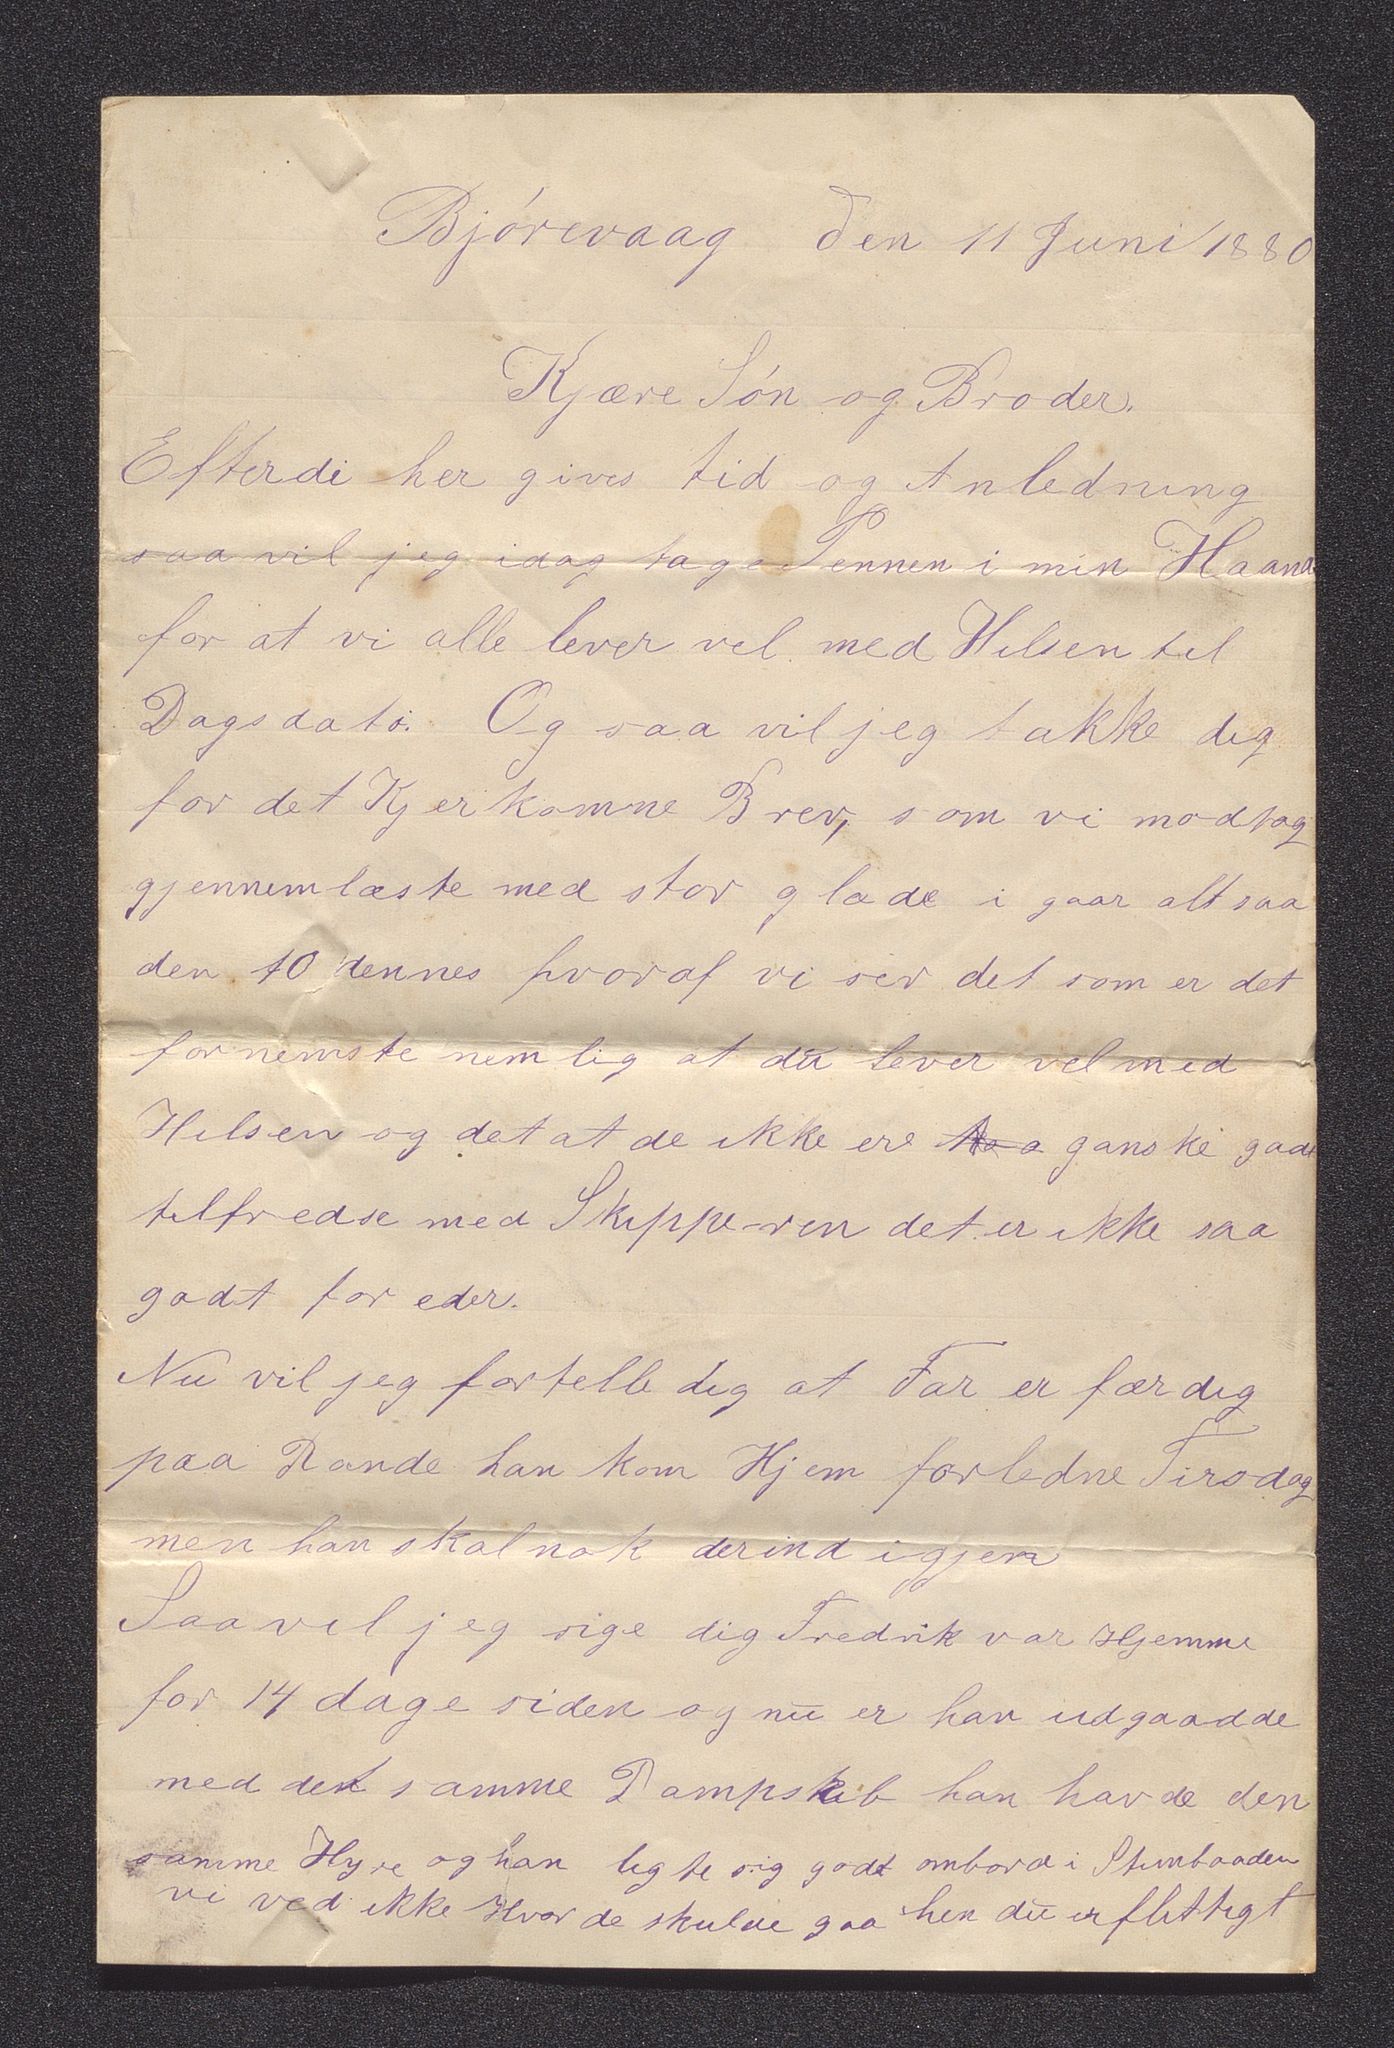 Bjórevaag den 11 Juni 1880
Kjære Són og Broder.
Efterdi her gives tid og Anledning
saa vil jeg idag tage Pennen i min Haand
for at vi alle lever vel med Hilsen til
Dagsdato. Og saa vil jeg takke dig
for det Kjerkomne Brev, som vi modtog
gjennemlæste med stor glade i gaar altsaa
den 10 dennes hvoraf vi ser det som er det
fornemste nemlig at du lever vel med
Hilsen og det at de ikke ere ganske godt
tilfredse med Skipperen det er ikke saa
godt for eder.
Nu vil jeg fortelle dig at Far er færdig
paa Rande han kom Hjem forledne Tirsdag
men han skal nok derind igjen
Saa vil jeg sige dig Fredrik var Hjemme
for 14 dage siden og nu er han udgaadde
med det samme Dampskib han havde den
samme Hyre og han ligte sig godt ombord i Stimbaaden
vi ved ikke Hvor de skulde gaa hen du er flittigt